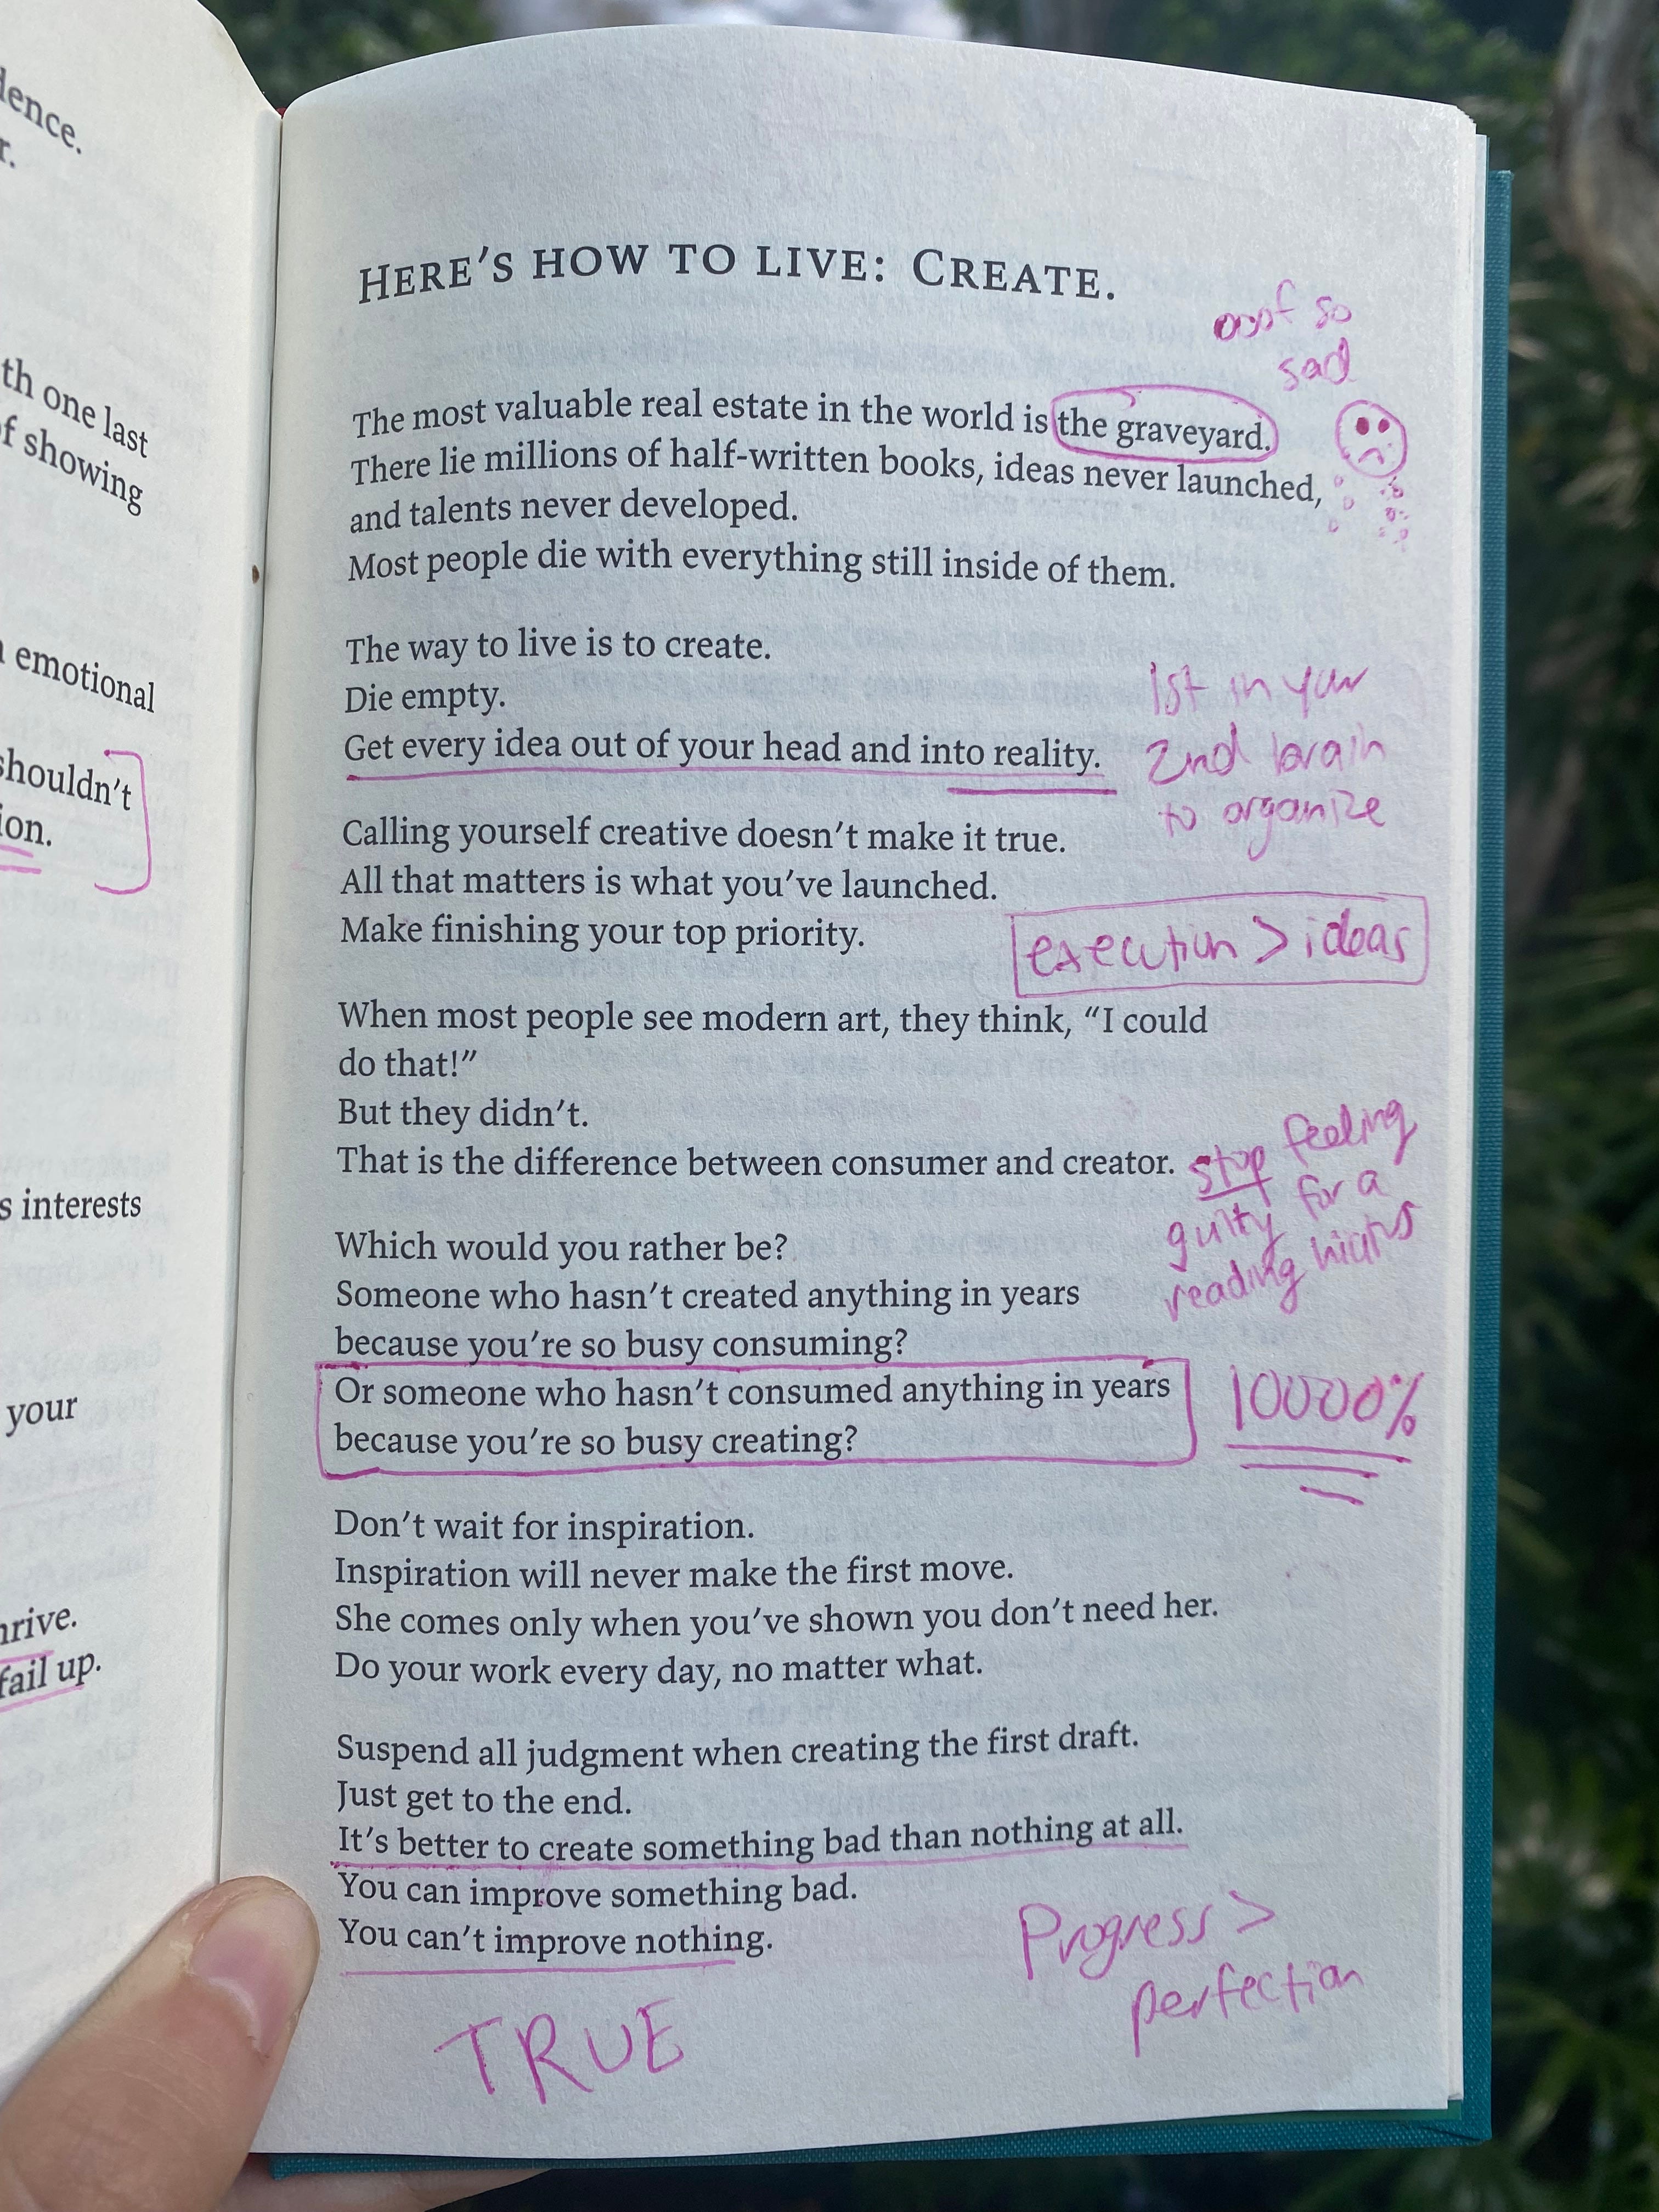 dence.
r.
th one last
of showing
emotional
shouldn't
ion.
s interests
your
hrive.
fail up.
HERE'S HOW TO LIVE: CREATE.
ooof so
sad
The most valuable real estate in the world is the graveyard.
There lie millions of half-written books, ideas never launched,
and talents never developed.
Most people die with everything still inside of them.
The way to live is to create.
Die empty.
Get every idea out of your head and into reality.
1st in your
2nd brain
to organize
Calling yourself creative doesn't make it true.
All that matters is what you've launched.
Make finishing your top priority.
execution > ideas
When most people see modern art, they think, “I could
do that!”
But they didn't.
That is the difference between consumer and creator.
stop feeling
guilty for a
reading
Which would you rather be?
Someone who hasn't created anything in years
because you're so busy consuming?
Or someone who hasn't consumed anything in years
because you're so busy creating?
10000%
Don't wait for inspiration.
Inspiration will never make the first move.
She comes only when you've shown you don't need her.
Do your work every day, no matter what.
Suspend all judgment when creating the first draft.
Just get to the end.
It's better to create something bad than nothing at all.
You can improve something bad.
You can't improve nothing.
Progress >
perfection
TRUE